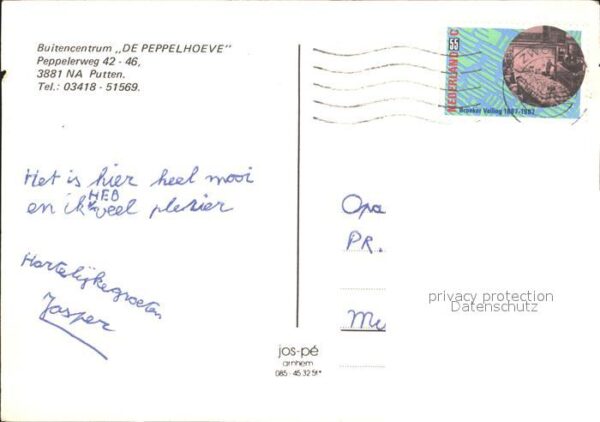 Buitencentrum „DE PEPPELHOEVE"
Peppelerweg 42 - 46,
3881 NA Putten.
Tel.: 03418 - 51569.
NEDERLAND
55 C
Broeker Veiling 1887-1987
Het is hier heel mooi
HEB
en ik veel plezier
Hartelijkegroeten
Jasper
Opa
PR.
Me
privacy protection
Datenschutz
jos-pé
arnhem
085 - 45 32 51*